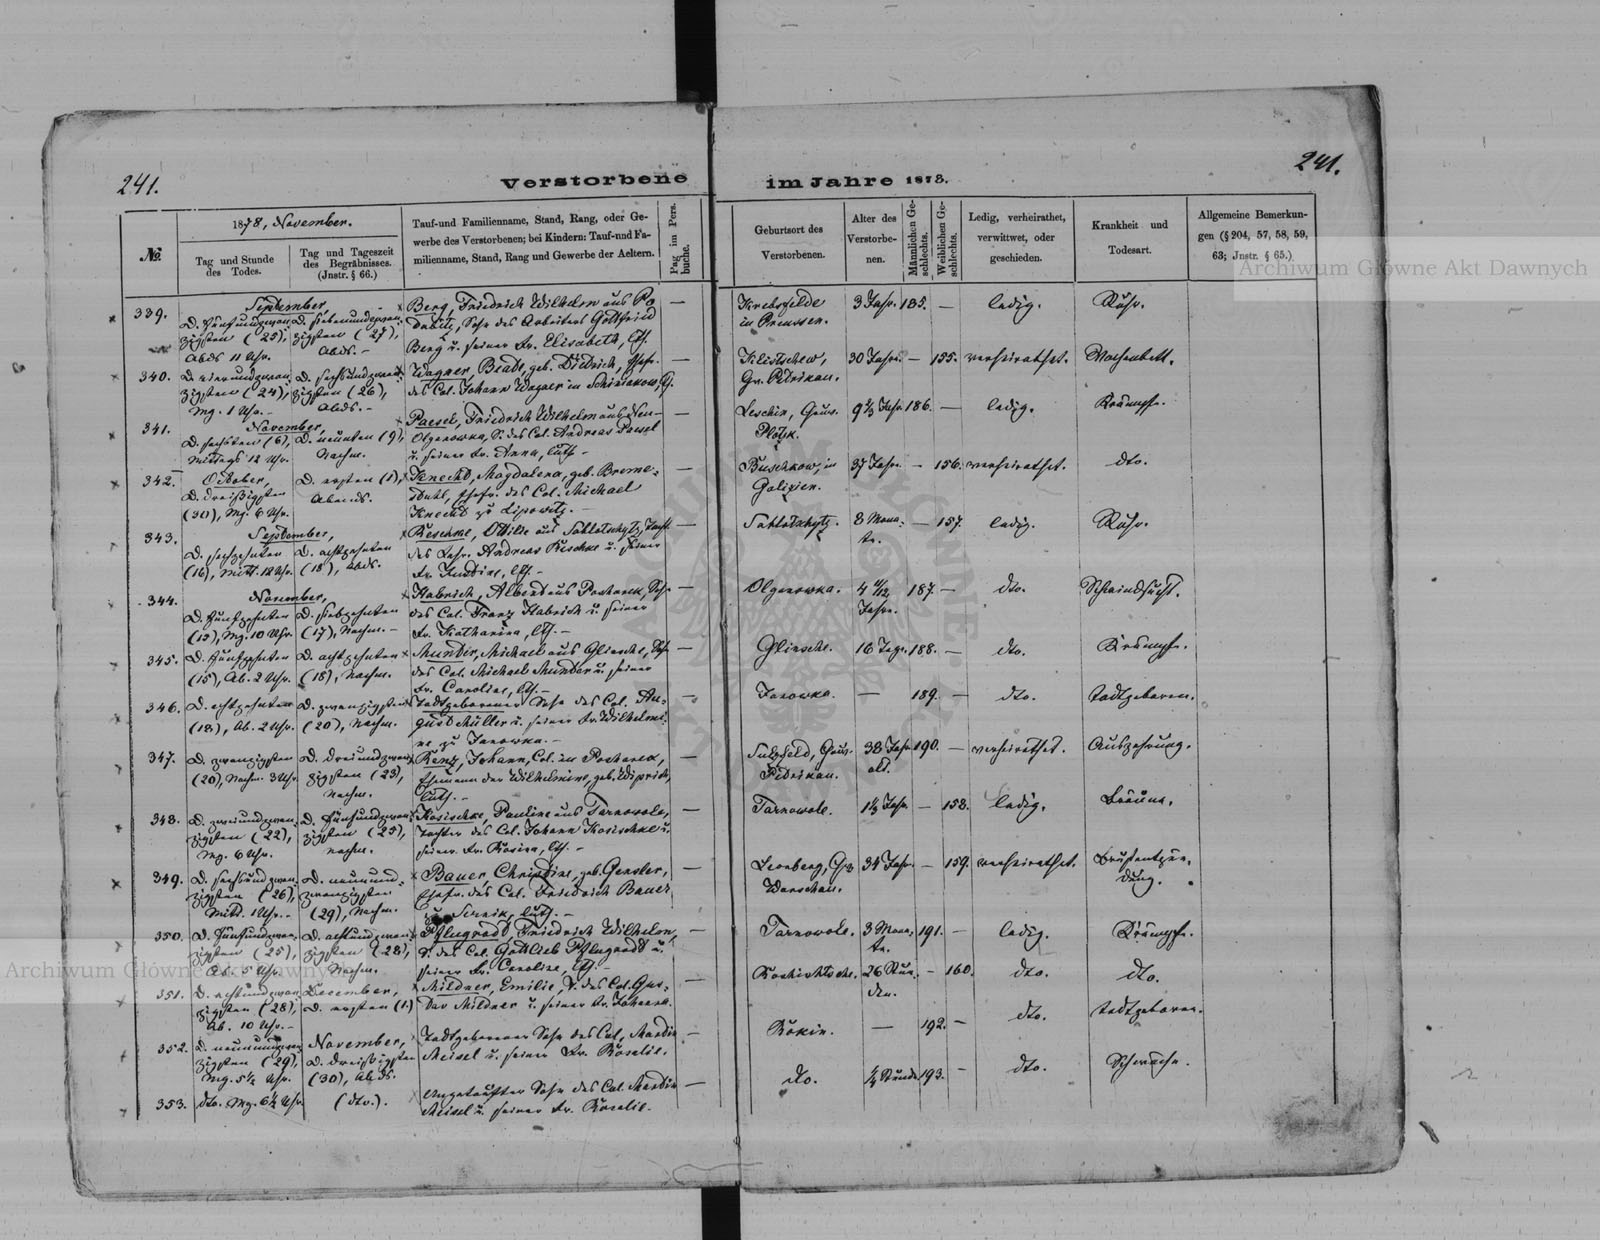 241.
Verstorbene
im Jahre 1873.
241.
№
1878, November.
Tag und Stunde
des Todes.
Tag und Tageszeit
des Begräbnisses.
(Jnstr. § 66.)
Tauf-und Familienname, Stand, Rang, oder Ge-
werbe des Verstorbenen; bei Kindern: Tauf-und Fa-
milienname, Stand, Rang und Gewerbe der Aeltern.
Pag. im Pers.
buche.
Geburtsort des
Verstorbenen.
Alter des
Verstorbe-
nen.
Männlichen Ge-
schlechts.
Weiblichen Ge-
schlechts.
Ledig, verheirathet,
verwittwet, oder
geschieden.
Krankheit und
Todesart.
Allgemeine Bemerkun-
gen (§ 204, 57, 58, 59,
63; Jnstr. § 65.)
Archiwum Główne Akt Dawnych
339.
September
D. fünfundzwan-
zigsten (25),
Abds 11 Uhr.
D. siebenundzwan-
zigsten (27),
Abds. –
Berg, Friedrich Wilhelm aus
Sohn des Arbeiters Gottfried
Berg u. seiner Fr. Elisabeth,
—
Krebsfelde
in Preussen.
3 Jahr.
185.
—
ledig.
Ruhr.
340.
D. vierundzwan-
zigsten (24),
Mg. 1 Uhr. –
D. sechsundzwan-
zigsten (26),
Abds. –
Wagner, Beate, geb. Dietrich, Ehefr.
des Col. Johann Wagner in
—
Klistschew,
Gv. Petrikau.
30 Jahr.
—
155.
verheirathet.
Wochenbett.
341.
November,
D. sechsten (6),
Mittags 12 Uhr.
D. neunten (9),
Nachm.
Paesel, Friedrich Wilhelm aus Neu-
Olganowka, S. des Col. Andreas Paesel
u. seiner Fr. Anna, luth. –
—
Leschin, Gouv.
Plotzk.
9 1/3 Jahr
186.
—
ledig.
Krämpfe.
342.
October,
D. dreißigsten
(30), Mg. 6 Uhr.
D. ersten (1),
Abends.
Knecht, Magdalena, geb. Breme-
Ehefr. des Col. Michael
Knecht zu Lipowitz. –
—
Buschkow, in
Galizien.
37 Jahr.
—
156.
verheirathet.
dto.
343.
September,
D. sechzehnten
(16), Mitt. 12 Uhr.
D. achtzehnten
(18), Abds.
Reschke, Ottilie aus
des Andreas Reschke u. seiner
Fr.
—
8 Mona-
te.
—
157.
ledig.
Ruhr.
344.
November,
D. fünfzehnten
(15), Mg. 10 Uhr.
D. siebzehnten
(17), Nachm. –
Habrich, Albert aus
des Col. Franz Habrich u. seiner
Fr. Katharina,
—
Olganowka.
4 11/12
Jahre.
187.
—
dto.
Schwindsucht.
345.
D. fünfzehnten
(15), Ab. 2 Uhr.
D. achtzehnten
(18), Nachm.
Munder, Michael aus
des Col. Michael Munder u. seiner
Fr. Caroline,
—
16 Tage.
188.
—
dto.
Krämpfe.
346.
D. achtzehnten
(18), Ab. 2 Uhr.
D. zwanzigsten
(20), Nachm.
Todtgeborener Sohn des Col. Au-
gust Müller u. seiner Fr. Wilhelmi-
ne zu Janowka. –
—
Janowka.
—
189.
—
dto.
Todtgeboren.
347.
D. zwanzigsten
(20), Nachm. 3 Uhr
D. dreiundzwan-
zigsten (23),
Nachm.
Renz, Johann, Col. in
Ehemann der Wilhelmine, geb.
luth. –
—
Sulzfeld, Gouv.
Petrikau.
38 Jahr
alt.
190.
—
verheirathet.
Auszehrung.
348.
D. zweiundzwan-
zigsten (22),
Mg. 6 Uhr.
D. fünfundzwan-
zigsten (25),
Nachm.
Kosischke, Pauline aus Tarnowole,
Tochter des Col. Johann Kosischke u.
seiner Fr. Rosina,
—
Tarnowole.
1 1/3 Jahr
—
158.
ledig.
Bräune.
349.
D. sechsundzwan-
zigsten (26),
Mitt. 1 Uhr. –
D. neunund-
zwanzigsten
(29), Nachm.
Bauer Christine, geb. Gensler,
Ehefr. des Col. Friedrich Bauer
zu Sernik, luth. –
—
Leonberg, Gv.
Warschau.
34 Jahr.
—
159.
verheirathet.
Brustentzün-
dung.
350.
D. fünfundzwan-
zigsten (25),
Ab. 5 Uhr.
D. achtundzwan-
zigsten (28),
Nachm.
Pflugradt Friedrich Wilhelm,
S. des Col. Gottlieb Pflugradt u.
seiner Fr. Caroline,
—
Tarnowole.
3 Mona-
te.
191.
—
ledig.
Krämpfe.
351.
D. achtundzwan-
zigsten (28),
Ab. 10 Uhr. –
December,
D. ersten (1.)
Mildner, Emilie, T. des Col. Gus-
tav Mildner u. seiner Fr. Johanna.
—
26 Stun-
den.
—
160.
dto.
dto.
352.
D. neunundzwan-
zigsten (29),
Mg. 5 1/2 Uhr.
November,
D. dreißigsten
(30), Abds.
Todtgeborener Sohn des Col. Martin
Meisel u. seiner Fr. Rosalie.
—
Rokin.
—
192.
—
dto.
Todtgeboren.
353.
dto. Mg. 6 1/4 Uhr.
(dto.).
Ungetaufter Sohn des Col. Martin
Meisel u. seiner Fr. Rosalie.
—
dto.
1/4 Stunde
193.
—
dto.
Schwäche.
Archiwum Główne Akt Dawnych